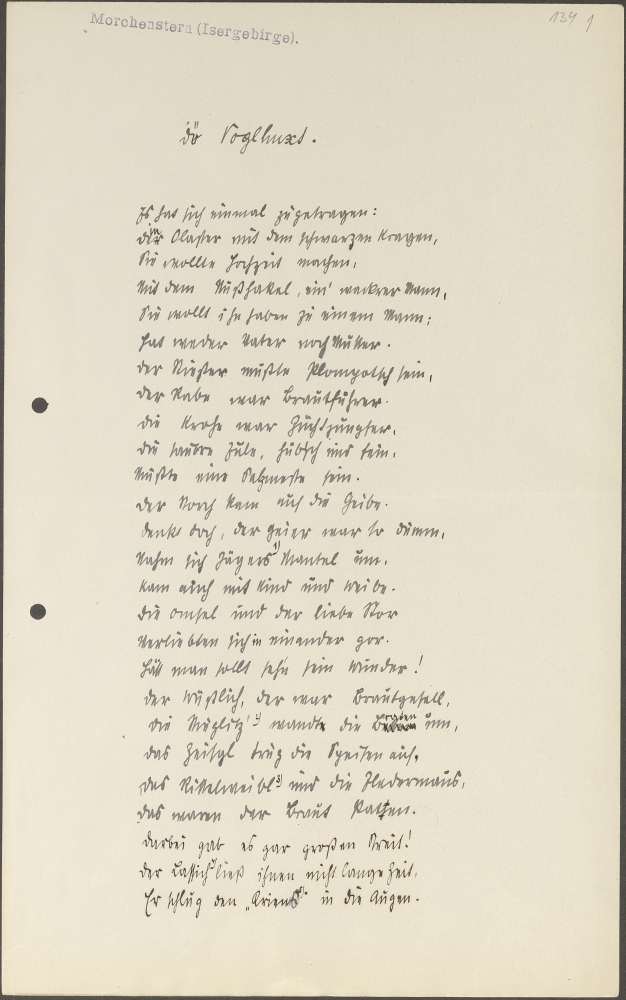 Morchenstern (Isergebirge).
134 1
dö Voglhuxt.
Es hat sich einmal zugetragen:
Olaster mit dem schwarzen Kragen,
Sie wollte Hochzeit machen,
Mit dem Nußhakel, ein' wackrer Mann,
Sie wollt ihn haben zu einem Mann;
hat weder Vater noch Mutter.
der mußte Plompatsch sein,
der Rabe war Brautführer.
die Krohe war Zuchtjungfer,
die Zule, hübsch und fein,
Mußte eine Salzmeste sein.
der Storch kam auf die Geibe.
denkt doch, der Geier war so dumm,
Nahm sich Jägers 1) Mantel um,
kam auch mit Kind und Weibe.
die Omsel und der liebe Stor
Verliebten sich in einander gor.
hätt man sollt sehn sein Wunder!
der, der war Brautgesell,
die 2) wandte die um,
das Zeisgl trug die Speisen auf,
das Rittelweibl 3) und die Fledermaus,
das waren der Braut Patten.
darbei gab es gar großen Streit!
der ließ ihnen nicht lange Zeit,
Er schlug den in die Augen.